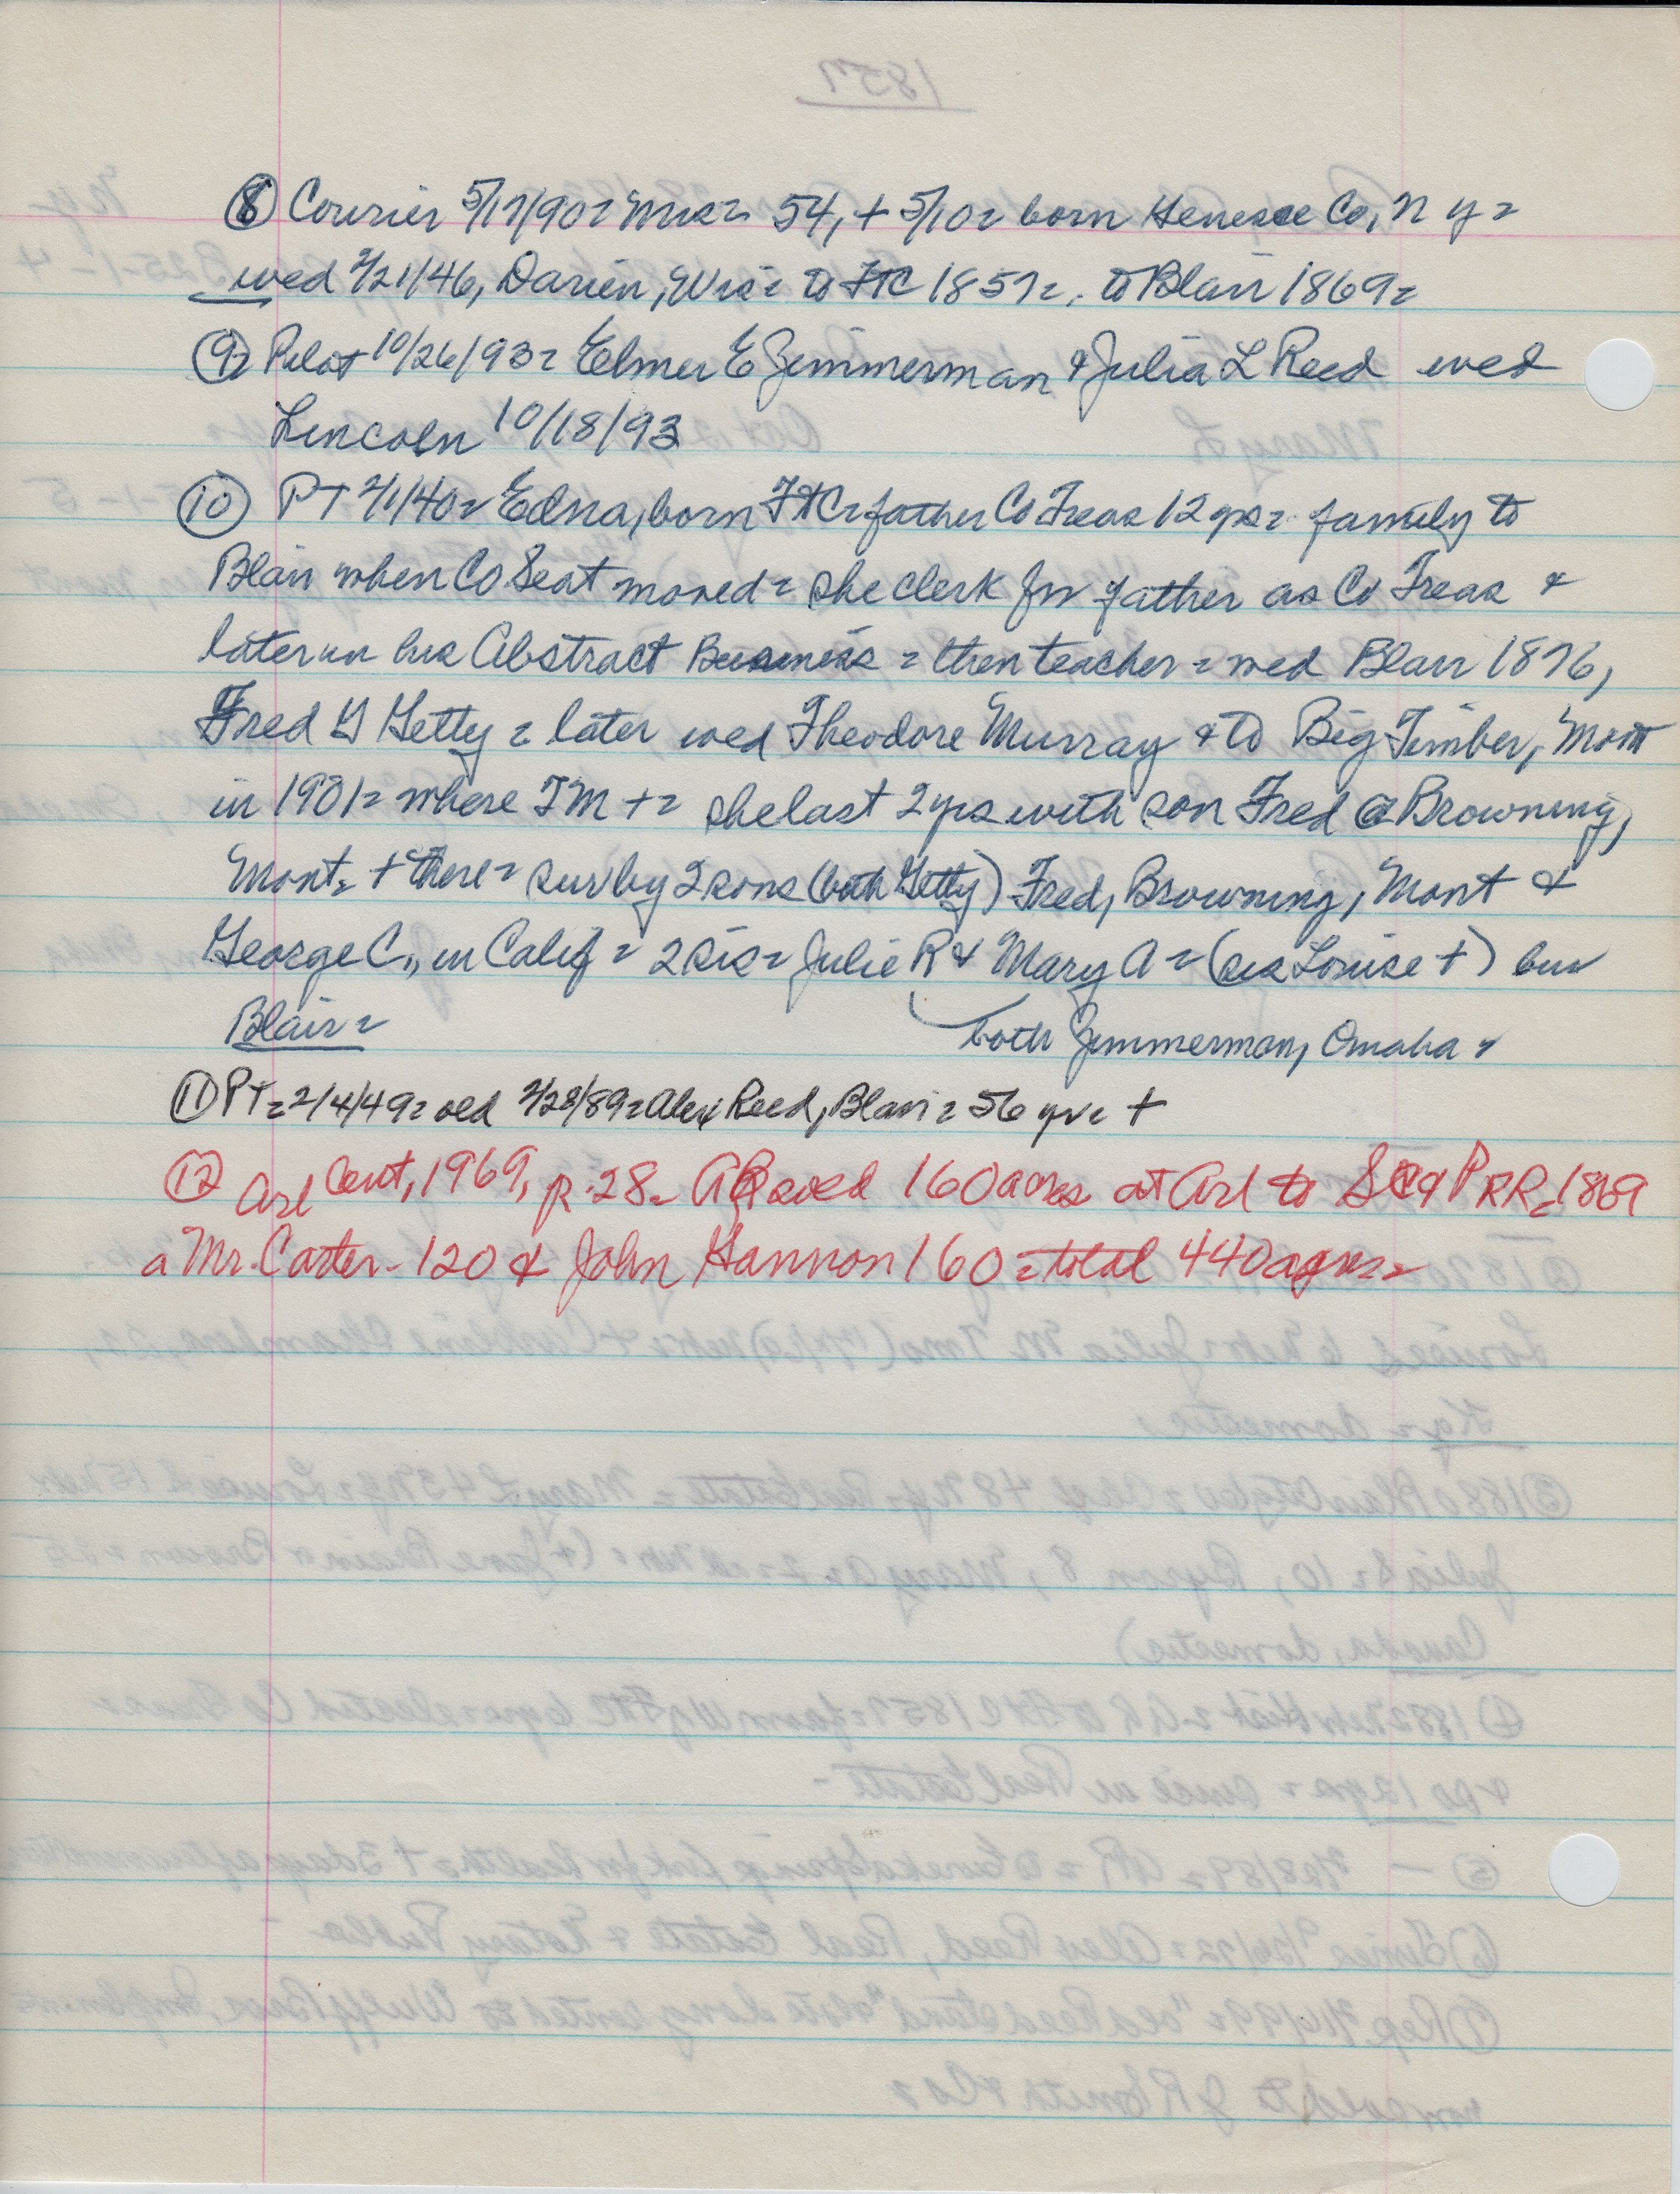 ⑧ Courier 5/17/90 = Mrs = 54, + 5/10 = born Genesee Co, N Y =
wed 2/21/46, Darien, Wis = to FtC 1857 =, to Blair 1869 =
⑨ Pilot 10/26/93 = Elmer E Zimmerman & Julia L Reed wed
Lincoln 10/18/93
⑩ PT 2/1/40 = Edna, born FtC = father Co Treas 12 yrs = family to
Blair when Co Seat moved = she clerk for father as Co Treas &
later in his Abstract Business = then teacher = wed Blair 1876,
Fred G Getty = later wed Theodore Murray & to Big Timber, Mont
in 1901 = where TM + = she last 2 yrs with son Fred @ Browning,
Mont = + there = sur by 2 sons (both Getty) Fred, Browning, Mont &
George C., in Calif = 2 sis = Julie R & Mary A = (sis Louise +) bur
Blair =
both Zimmerman, Omaha =
⑪ PT = 2/4/49 = old 2/28/89 = Alex Reed, Blair = 56 yr = +
⑫ Arl Cent, 1969, p. 28 = AR sold 160 acres at Arl to SC & P RR = 1869
a Mr. Carter - 120 & John Hannon 160 = total 440 acres =